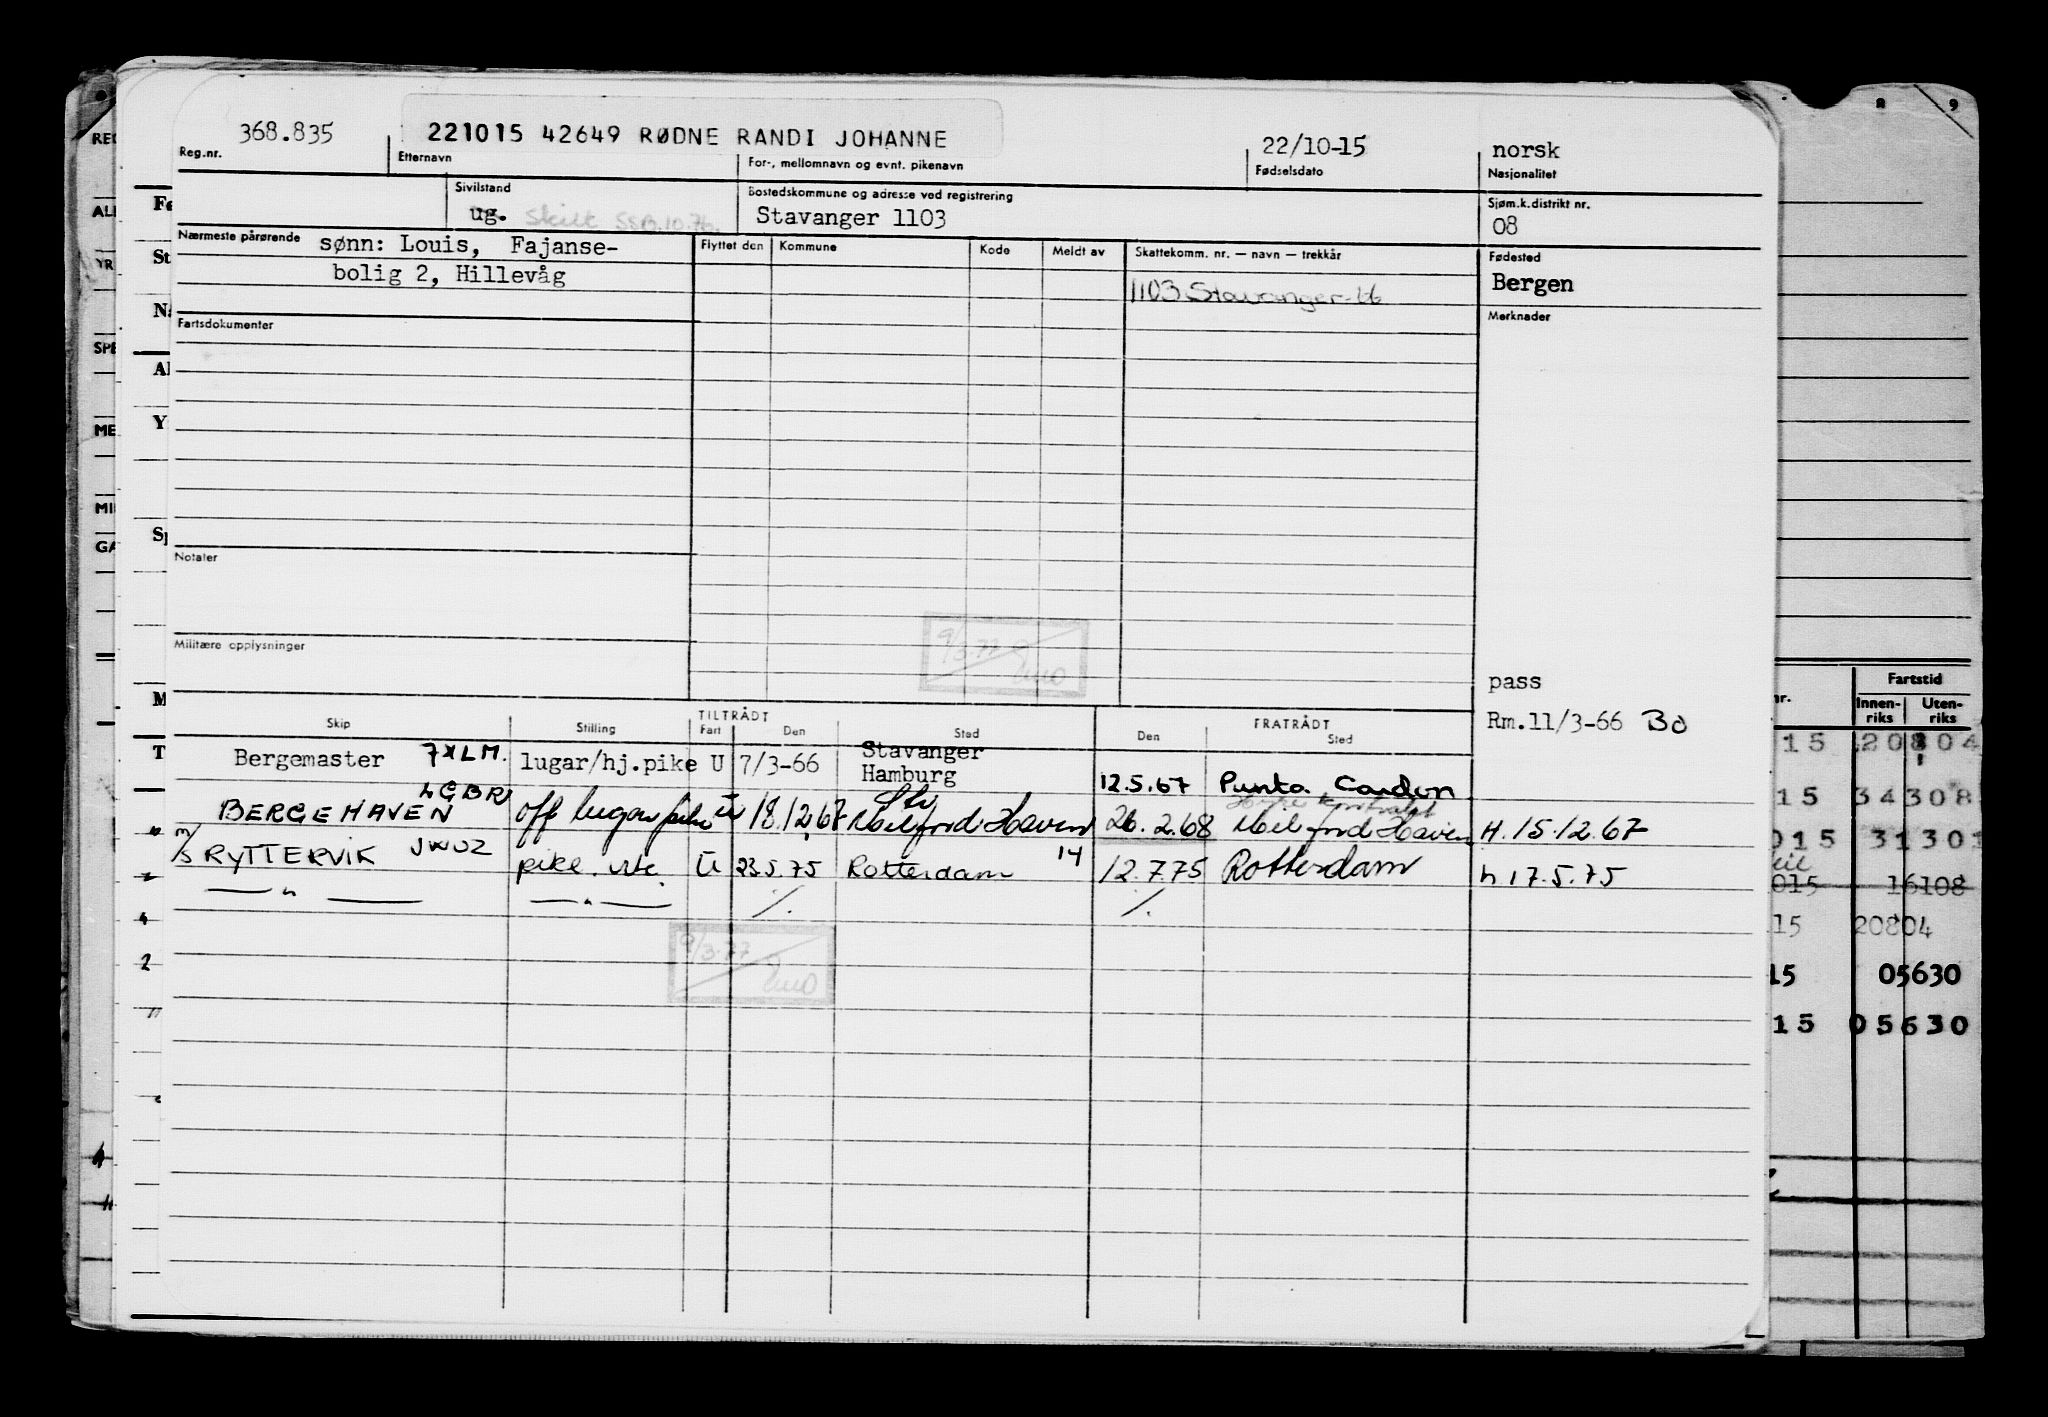 368.835
221015 42649 RØDNE RANDI JOHANNE
22/10-15
norsk
Reg.nr.
Etternavn
For-, mellomnavn og evnt. pikenavn
Fødselsdato
Nasjonalitet
Sivilstand
Bostedskommune og adresse ved registrering
Sjøm.k.distrikt nr.
ug. Skilt SSB.10.76.
Stavanger 1103
08
Nærmeste pårørende
sønn: Louis, Fajanse-
bolig 2, Hillevåg
Flyttet den
Kommune
Kode
Meldt av
Skattekomm. nr. — navn — trekkår
Fødested
1103 Stavanger-66
Bergen
Fartsdokumenter
Merknader
Notater
Militære opplysninger
9/3.77
pass
Rm.11/3-66 Bo
Skip
Stilling
TILTRÅDT
Fart
Den
Sted
FRATRÅDT
Den
Sted
Bergemaster 7XLM.
lugar/hj.pike U 7/3-66
Stavanger
Hamburg
12.5.67 Punta Cardon
BERGEHAVEN LGBR
off lugar pike U 18.12.67 Milford Haven
26.2.68 Milford Haven
H.15.12.67
M/S RYTTERVIK JWUZ
pike. U 23.5.75 Rotterdam 14
12.7.75 Rotterdam
h 17.5.75
— " —
— " —
./.
./.
9/3.77
8
9
REG
ALI
YR
SPE
ME
MI
GA
Fø
St
Na
Al
Y
Sp
M
T
nr.
Fartstid
Innen-
riks
Uten-
riks
15 20804
15 34308
015 31301
015 16108
15 20804
15 05630
15 05630